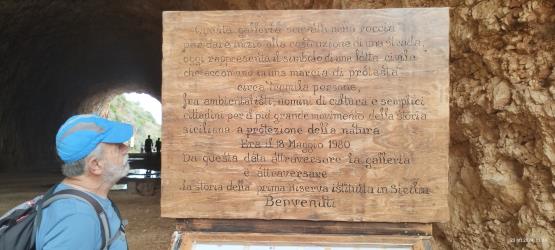 Questa galleria scavata nella roccia
per dare inizio alla costruzione di una strada,
oggi rappresenta il simbolo di una lotta civile
che accomunò in una marcia di protesta
circa tremila persone,
fra ambientalisti, uomini di cultura e semplici
cittadini per il più grande movimento della storia
siciliana a protezione della natura
Era il 18 Maggio 1980
Da questa data attraversare la galleria
è attraversare
la storia della prima riserva istituita in Sicilia
Benvenuti